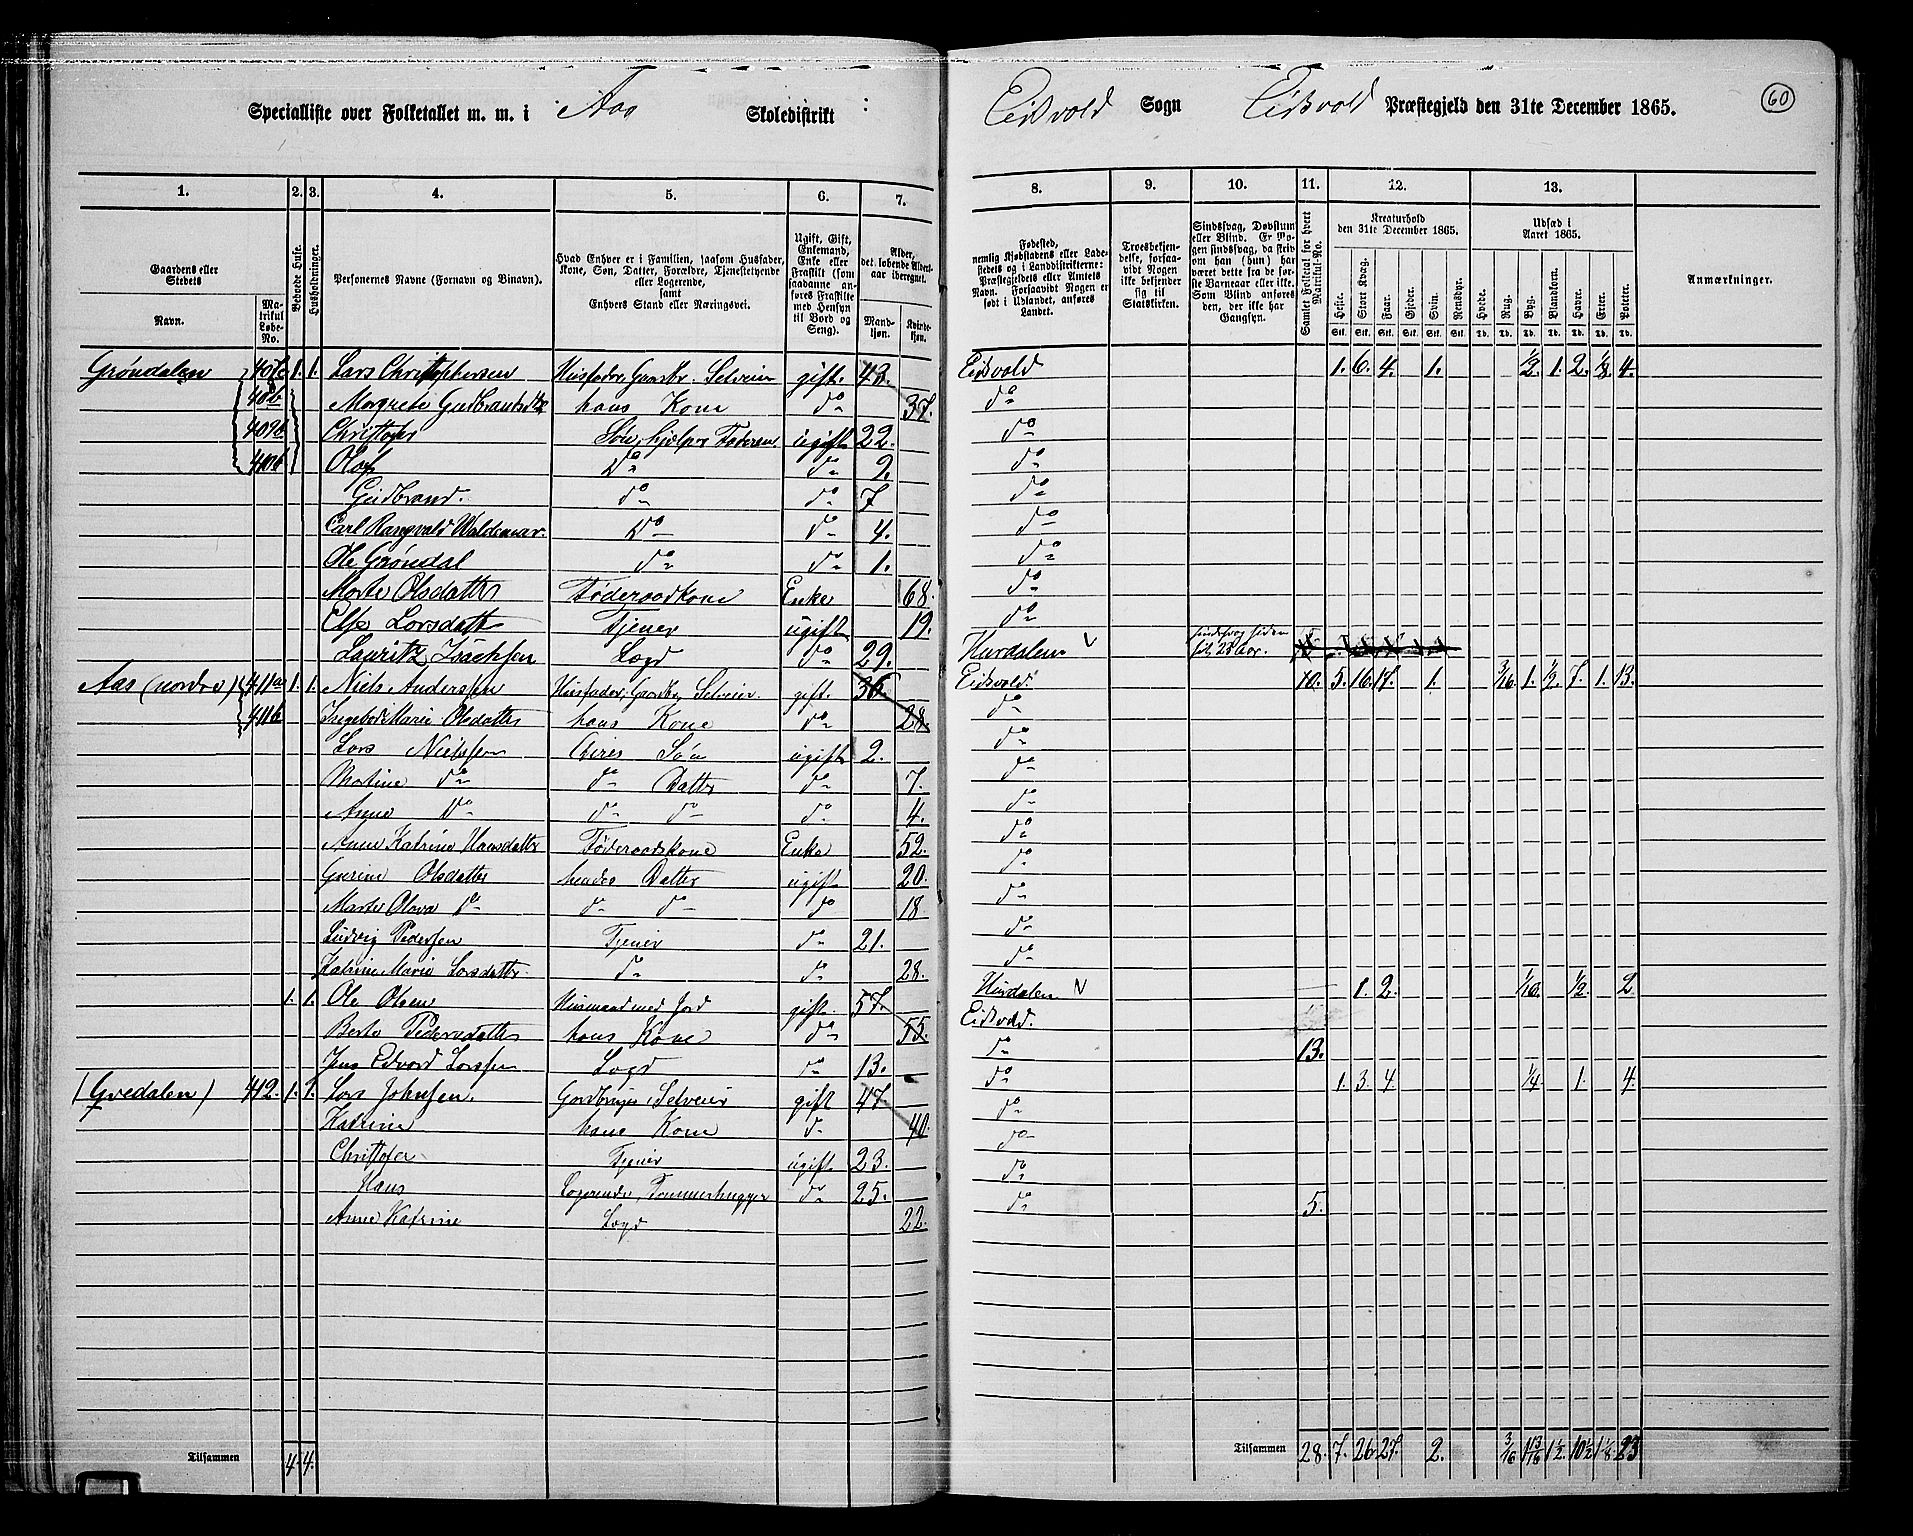 Specialliste over Folketallet m. m. i Aas Skoledistrikt
Eidsvold Sogn Eidsvold Præstegjeld den 31te December 1865. 60
1. 2. 3. 4. 5. 6. 7. 8. 9. 10. 11. 12. 13.
Gaardens eller Stedets
Navn. Matrikul Løbe-No.
Beboede Huse.
Husholdninger.
Personernes Navne (Fornavn og Binavn).
Hvad Enhver er i Familien, saasom Husfader, Kone, Søn, Datter, Forældre, Tjenestetyende eller Logerende, samt Enhvers Stand eller Næringsvei.
Ugift, Gift, Enkemand, Enke eller Fraskilt (saasom saadanne anføres Fraskilte med Hensyn til Bord og Seng).
Alder, det løbende Aldersaar iberegnet.
Mandkjøn. Kvindekjøn.
Fødested, nemlig Kjøbstadens eller Ladestedets og i Landdistrikterne: Præstegjeldets eller Amtets Navn. Forsaavidt Nogen er født i Udlandet, anføres Landet.
Troesbekjendelse, forsaavidt Nogen ikke bekjender sig til Statskirken.
Sindssvag, Døvstum eller Blind. Er Nogen sindssvag, da skrives om han (hun) har været dette fra de første Barneaar eller ikke. Som Blind anføres den, der ikke har Gangsyn.
Samlet Folketal for hvert Matrikul-No.
Kreaturhold den 31te December 1865.
Heste. Stort Kvæg. Faar. Gjeder. Svin. Rensdyr.
Udsæd i Aaret 1865.
Hvede. Rug. Byg. Blandkorn. Havre. Erter. Poteter.
Anmærkninger.
Grøndalen 407b 1. 1. Lars Christophersen Husfader, Gaardbr. Selveier gift. 43. Eidsvold 1. 6. 4. 1. 1/2. 1. 2. 1/8. 4.
408b Margrete Gudbrandsdtr hans Kone do 37. do
409b Christofer Søn, hjelper Faderen ugift 22. do
410b Olaf Do do 9. do
Gudbrand. do do 7 do
Carl Rangvald Waldemar. Do do 4. do
Ole Grøndal do do 1. do
Marte Olsdatter Føderaadskone Enke 68. do
Else Larsdatter Tjener ugift 19. do
Lauritz Isachsen Logd do 29. Hurdalen sindssvag siden sit 28 Aar.
Aas (nordre) 411a 1. 1. Niels Anderssen Husfader, Gaardbr. Selveier. gift. 36. Eidsvold. 10. 5. 16. 17. 1. 3/16. 1. 1/2. 7. 1. 13.
411b Ingebor Marie Olsdatter hans Kone do 28. do
Lars Nielssen Deres Søn ugift 2. do
Martine do do Datter do 7. do
Anne Do do do do 4. do
Anne Katrine Hansdatter Føderaadskone Enke 52. do
Gurine Olsdatter hendes Datter ugift 20. do
Marte Olava do do do do 18. do
Ludvig Pederssen Tjener do 21. do
Katrine Marie Larsdatter. do do 28. do
1. 1. Ole Olsen Husmand med Jord gift. 57. Hurdalen 1. 2. 1/10. 1/2. 2
Berte Pedersdatter hans Kone do 55. Eidsvold.
Jens Edvard Larssen Logd do 13. do 13.
(Gvedalen) 412. 1. 1. Lars Johnsen. Gaardbruger, Selveier gift 47. do 1. 3. 4. 1/4. 1. 4.
Katrine hans Kone do 40. do
Christofer Tjener ugift 23. do
Hans Logerende, Tømmerhugger do 25. do
Anne Katrine Logd 22. do 5.
Tilsammen 4. 4. Tilsammen 28. 7. 26. 27. 2. 3/16 1 13/16 1 1/2. 10 1/2 1 1/8. 23